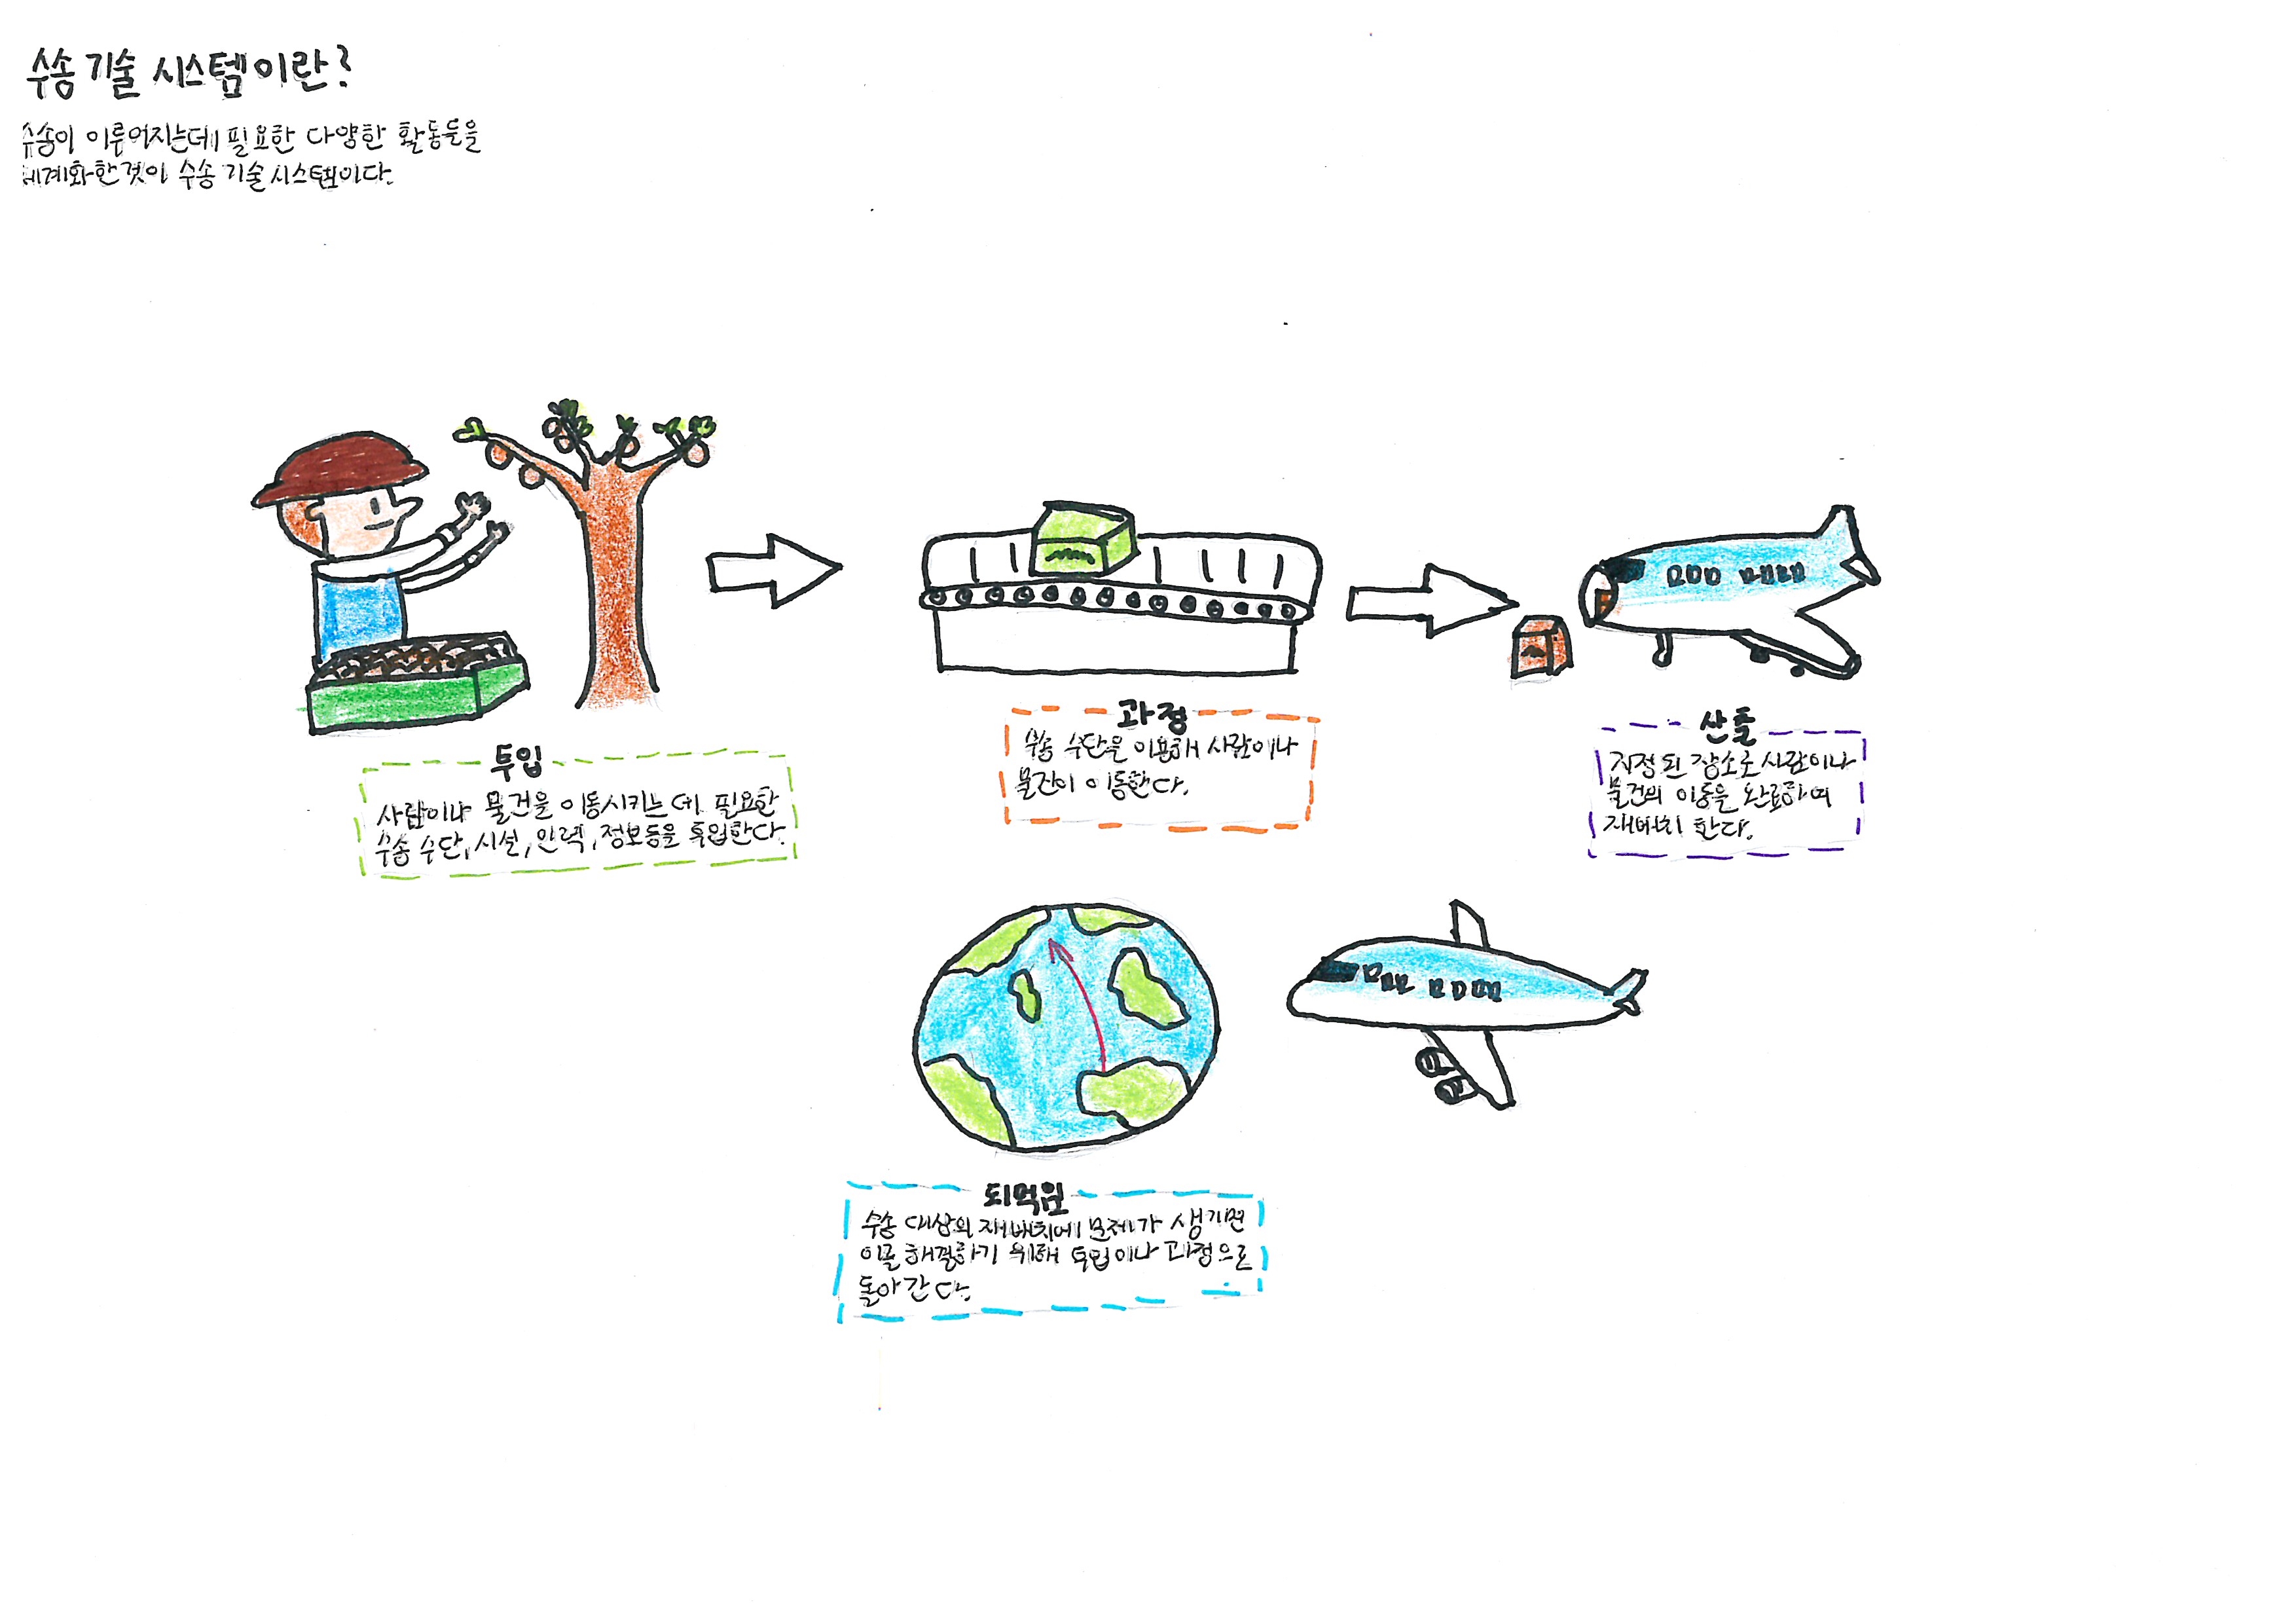 수송 기술 시스템이란?
수송이 이루어지는데 필요한 다양한 활동들을
세계화한것이 수송 기술 시스템이다.
투입
사람이나 물건을 이동시키는 데 필요한
수송 수단, 시설, 인력, 정보등을 투입한다.
과정
수송 수단을 이용해 사람이나
물건이 이동한다.
산출
지정된 장소로 사람이나
물건의 이동을 완료하여
재배치 한다.
되먹임
수송 대상의 재배치에 문제가 생기면
이를 해결하기 위해 투입이나 과정으로
돌아간다.